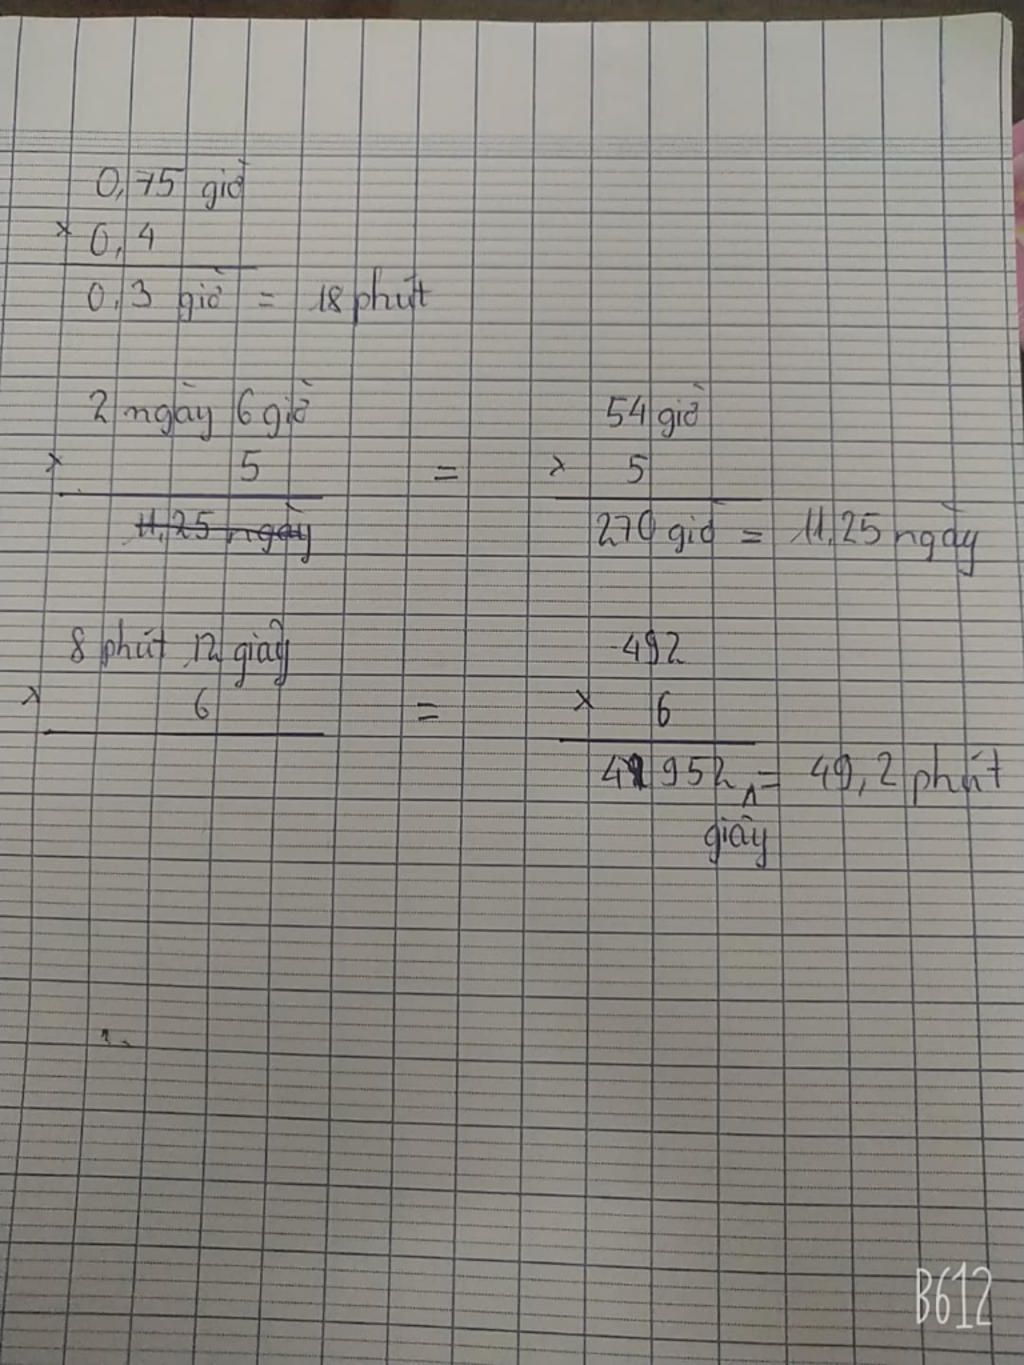 0,75 giờ
x 0,4
0,3 giờ = 18 phút
2 ngày 6 giờ
x 5 =
11,25 ngày
54 giờ
x 5
270 giờ = 11,25 ngày
8 phút 12 giây
x 6 =
492
x 6
2952 = 49,2 phút
giây
B612